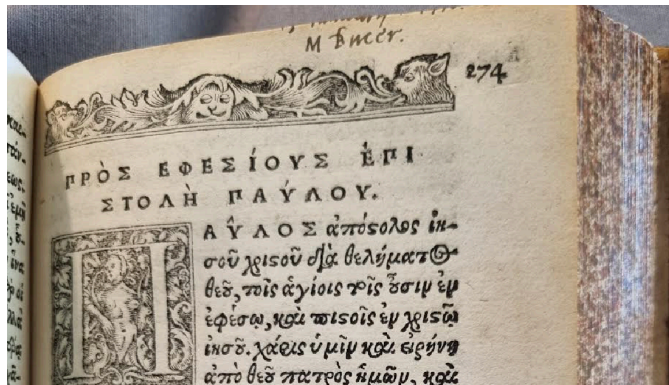 M Bucer.
274
ΠΡῸΣ ΕΦΕΣΊΟΥΣ ἘΠΙ
ΣΤΟΛῊ ΠΑΎΛΟΥ.
ΠΑΥ͂ΛΟΣ ἀπόστολος ἰη-
σοῦ χριστοῦ διὰ θελήματος
θεοῦ, τοῖς ἁγίοις τοῖς οὖσιν ἐν
ἐφέσῳ, καὶ πιστοῖς ἐν χριστῷ
ἰησοῦ. χάρις ὑμῖν καὶ εἰρήνη
ἀπὸ θεοῦ πατρὸς ἡμῶν, καὶ